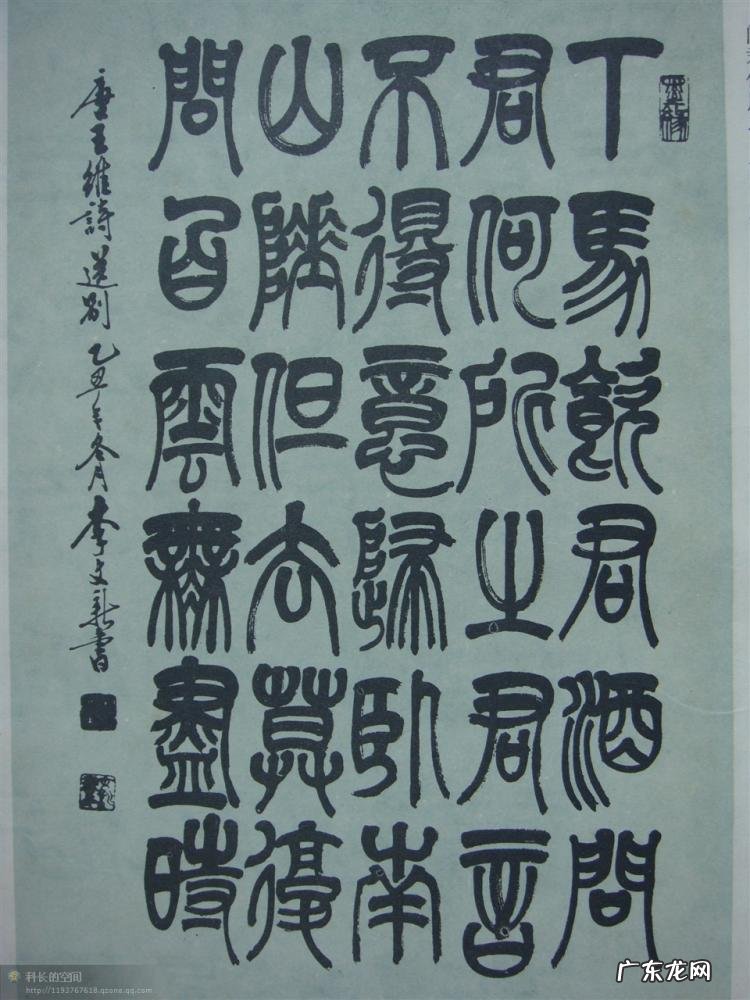 墨緣
下馬飲君酒問
君何所之君言
不得意歸臥南
山陲但去莫復
問白雲無盡時
唐王維詩送別 乙丑年冬月李文新書
科长的空间
http://1193767618.qzone.qq.com
广东龙网